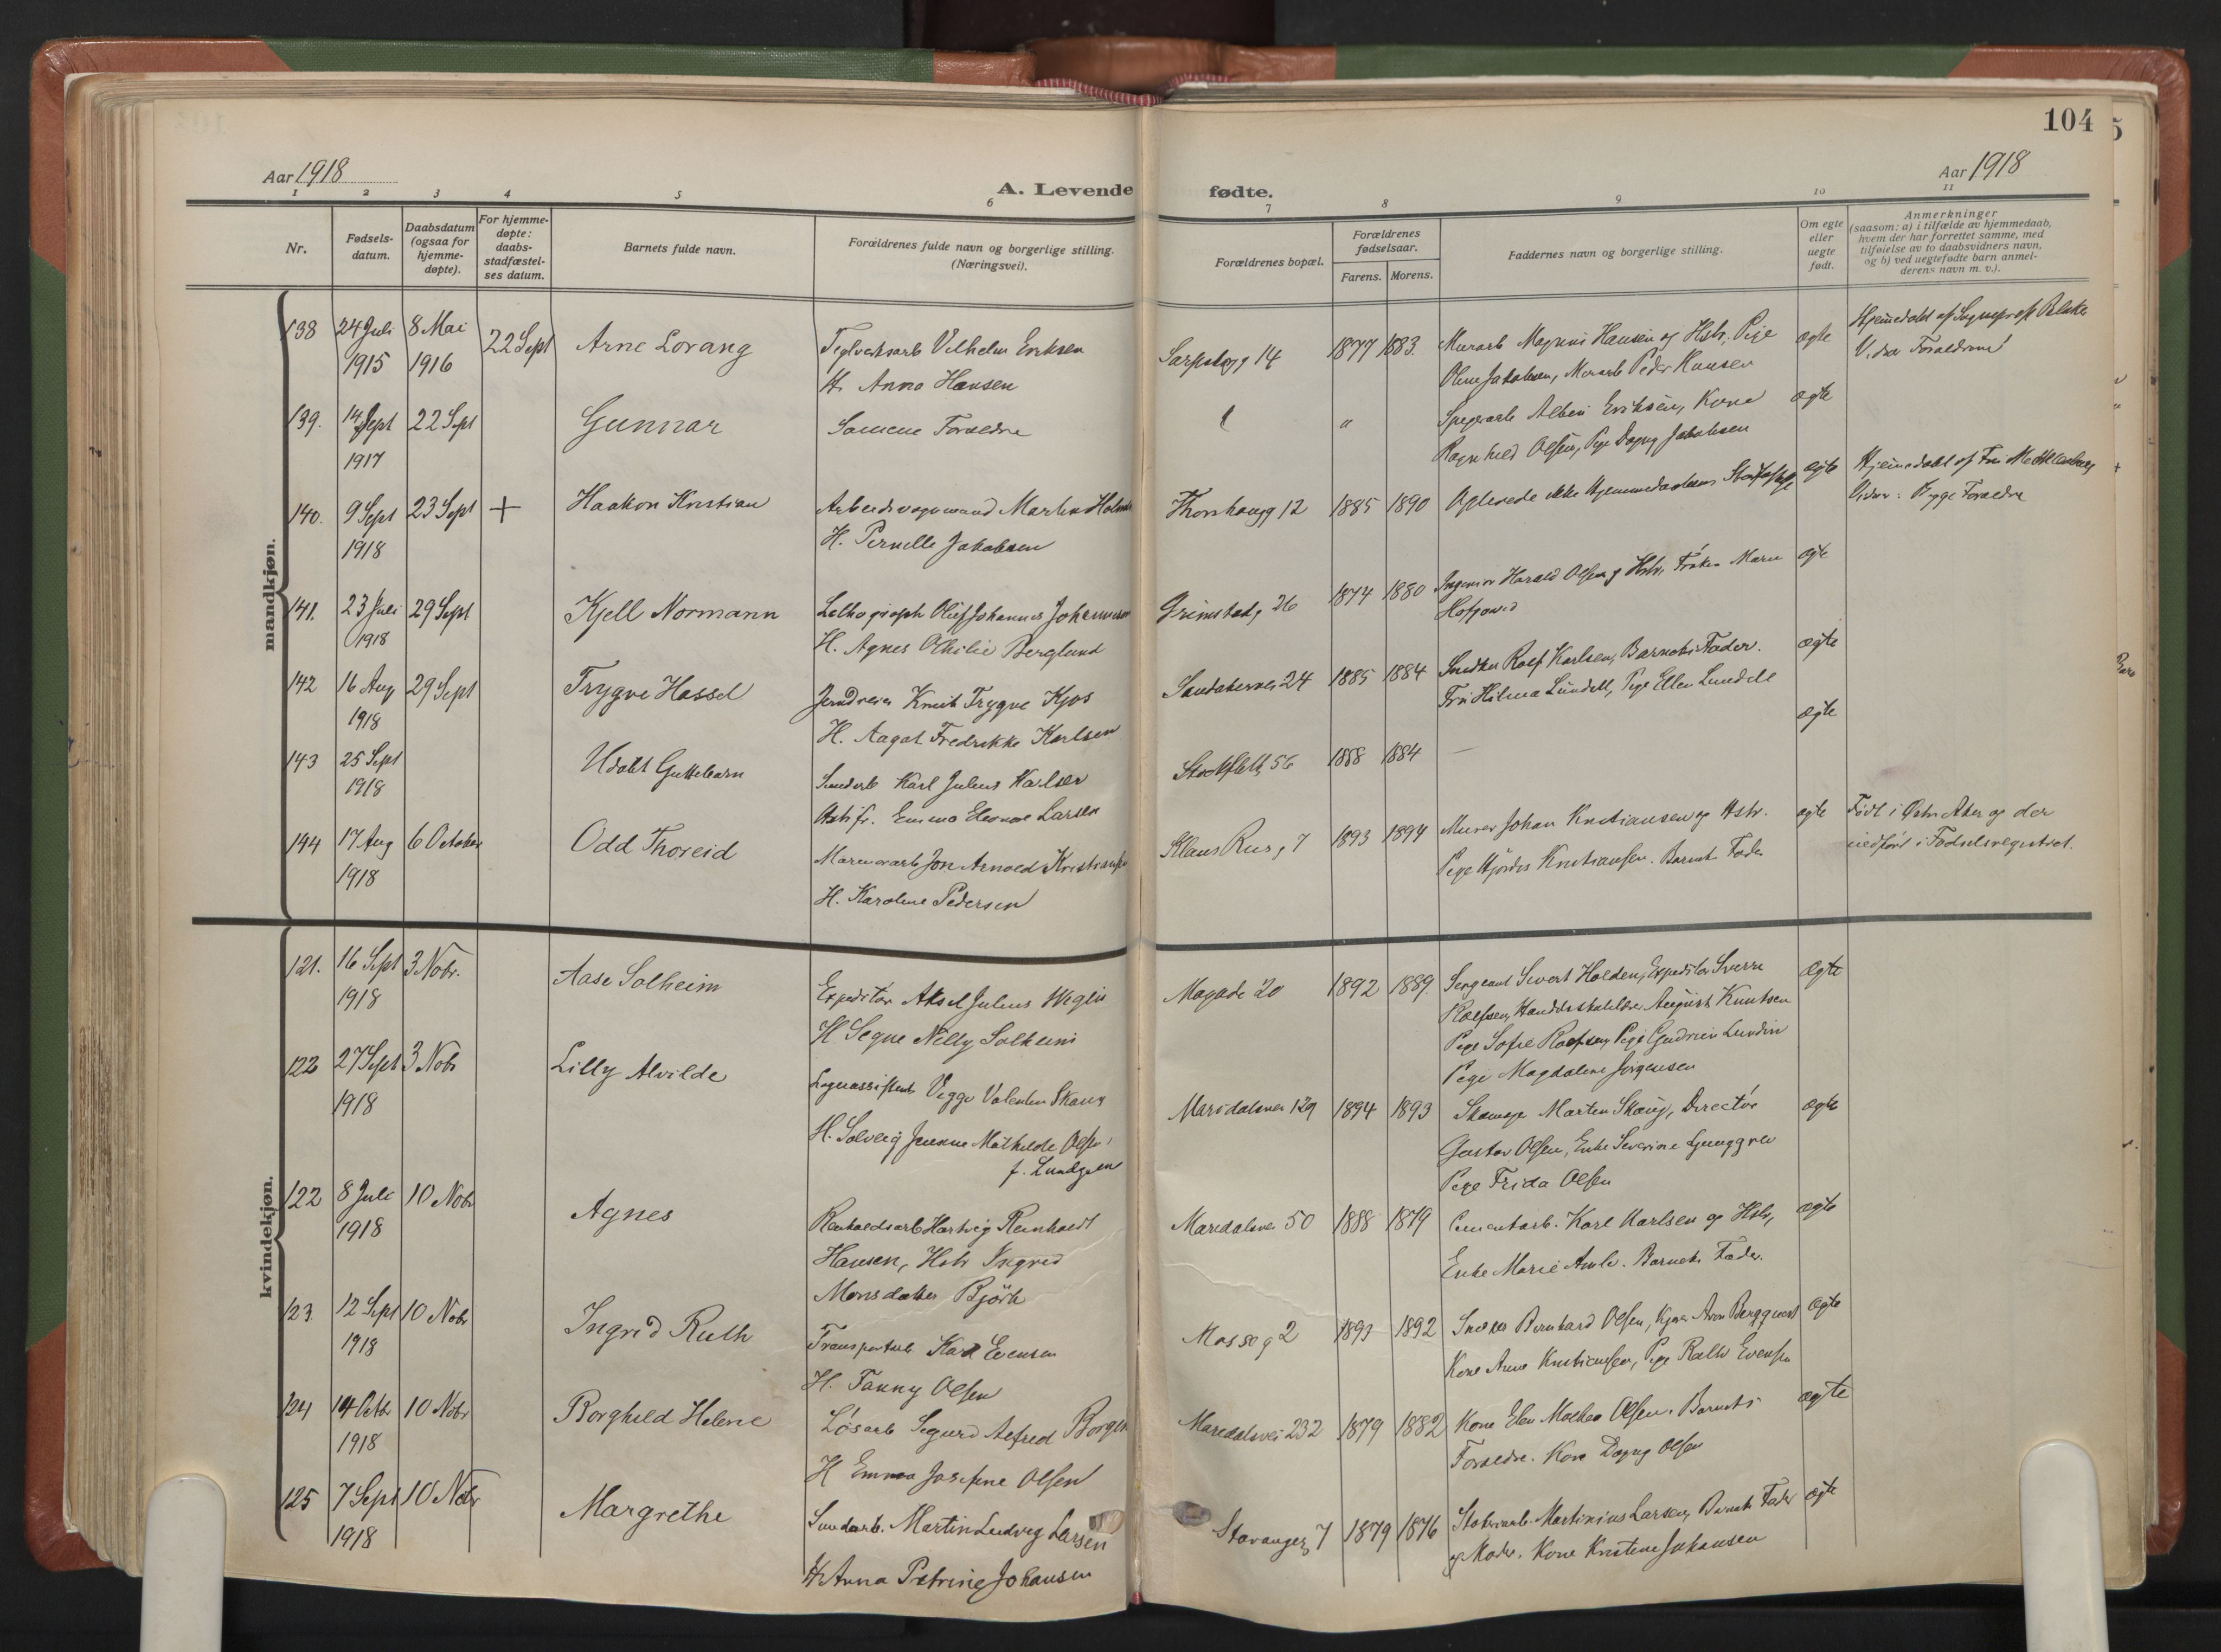 104
Aar 1918
Aar 1918
A. Levende fødte.
1 2 3 4 5 6 7 8 9 10 11
Nr.
Fødsels-
datum.
Daabsdatum
(ogsaa for
hjemme-
døpte).
For hjemme-
døpte:
daabs-
stadfæstel-
ses datum.
Barnets fulde navn.
Forældrenes fulde navn og borgerlige stilling.
(Næringsvei).
Forældrenes bopæl.
Forældrenes
fødselsaar.
Farens. Morens.
Faddernes navn og borgerlige stilling.
Om egte
eller
uegte
født.
Anmerkninger
(saasom: a) i tilfælde av hjemmedaab,
hvem der har forrettet samme, med
tilføielse av to daabsvidners navn,
og b) ved uegtefødte barn anmel-
derens navn m. v.).
mandkjøn.
138 24 Juli 8 Mai 22 Sept Arne Lorang Teglverksarb Vilhelm Eriksen Sarpsbgg 14 1877 1883. Murarb Magnus Hansen og Hstr, Pige ægte Hjemmedøbt af Sognepr
1915 1916 H. Anna Hansen Oline Jakobsen, Murarb Peder Hansen Forældrene
139. 14 Sept 22 Sept Gunnar Samme Forældre " Albin Eriksen, Kone ægte
1917 Ragnhild Olsen, Pige Dagny Jakobsen
140. 9 Sept 23 Sept + Haakon Kristian Arbeidsvognmand Martin Thorshaugg 12 1885 1890 Oplevede ikke Hjemmedaabens ægte Hjemmedøbt af
1918 H. Pernille Jakobsen Begge Forældre
141. 23 Juli 29 Sept Kjell Normann Olaf Johannes Johannesen Grimstadg 26 1874 1880 Ingeniør Harald Olsen og Hstr, Frøken ægte
1918 H. Agnes Berglund
142 16 Aug 29 Sept Trygve Hassel Knut Trygve Kjos Sandakervei 24 1885 1884 Snedker Rolf Karlsen, Barnets Fader. ægte
1918 H. Aagot Fredrikke Karlsen Fru Hilma Lundell, Pige Ellen Lundell
143 25 Sept Udøbt Guttebarn Karl Julius Karlsen 56 1888 1884 — ægte
1918 Hstr f. Emma Eleonore Larsen
144 17 Aug 6 October Odd Thoreid Marmorarb Jon Arnold Kristiansen Klaus Riisg 7 1893 1894 Murer Johan Kristiansen og Hstr. ægte Født i Østre Aker og der
1918 H. Karoline Pedersen Pige Hjørdis Kristiansen. Barnets Fader indført i Fødselsregistret.
kvindekjøn.
121. 16 Sept 3 Nobr. Aase Solheim Expeditør Aksel Julius Magade 20 1892 1889 Sergeant Sivert Holden, Expeditør Sverre Ægte
1918 H Signe Nelly Solheim August Knutsen
Pige Sofie Pige Gudrun Lundin
Pige Magdalene Jørgensen
122 27 Sept 3 Nobr Lilly Alvilde Lagerassistent Viggo Valentin Skaug Maridalsvei 129 1894 1893 Marten Skaug, Directør ægte
1918 H. Solveig Mathilde Olsen Gustav Olsen, Enke Severine
f. Lundgren Pige Frida Olsen
122 8 Juli 10 Nobr Agnes Renholdsarb Hartvig Reinholdt Maridalsvei 50 1888 1879 Cementarb. Karl Karlsen og Hstr, ægte
1918 Hansen, Hstr Ingrid Enke Marie Barnets Fader.
Monsdatter Björk
123 12 Sept 10 Nobr Ingrid Ruth Transportarb Karl Evensen Mossеg 2 1893 1892 Bernhard Olsen, Ægte
1918 H. Fanny Olsen Kone Anne Kristiansen, Pige Evensen
124 14 Octbr 10 Nobr Borghild Helene Løsarb Sigurd Alfred Maridalsvei 232 1879 1882 Kone Elen Olsen. Barnets ægte
1918 H Emma Josefine Olsen Forældre. Kone Dagny Olsen
125 7 Sept 10 Nobr Margrethe Martin Ludvig Larsen Stavangerg 7 1879 1876 Martinius Larsen, Barnets Fader ægte
1918 H. Anna Petrine Johansen og Moder. Kone Kristine Johansen